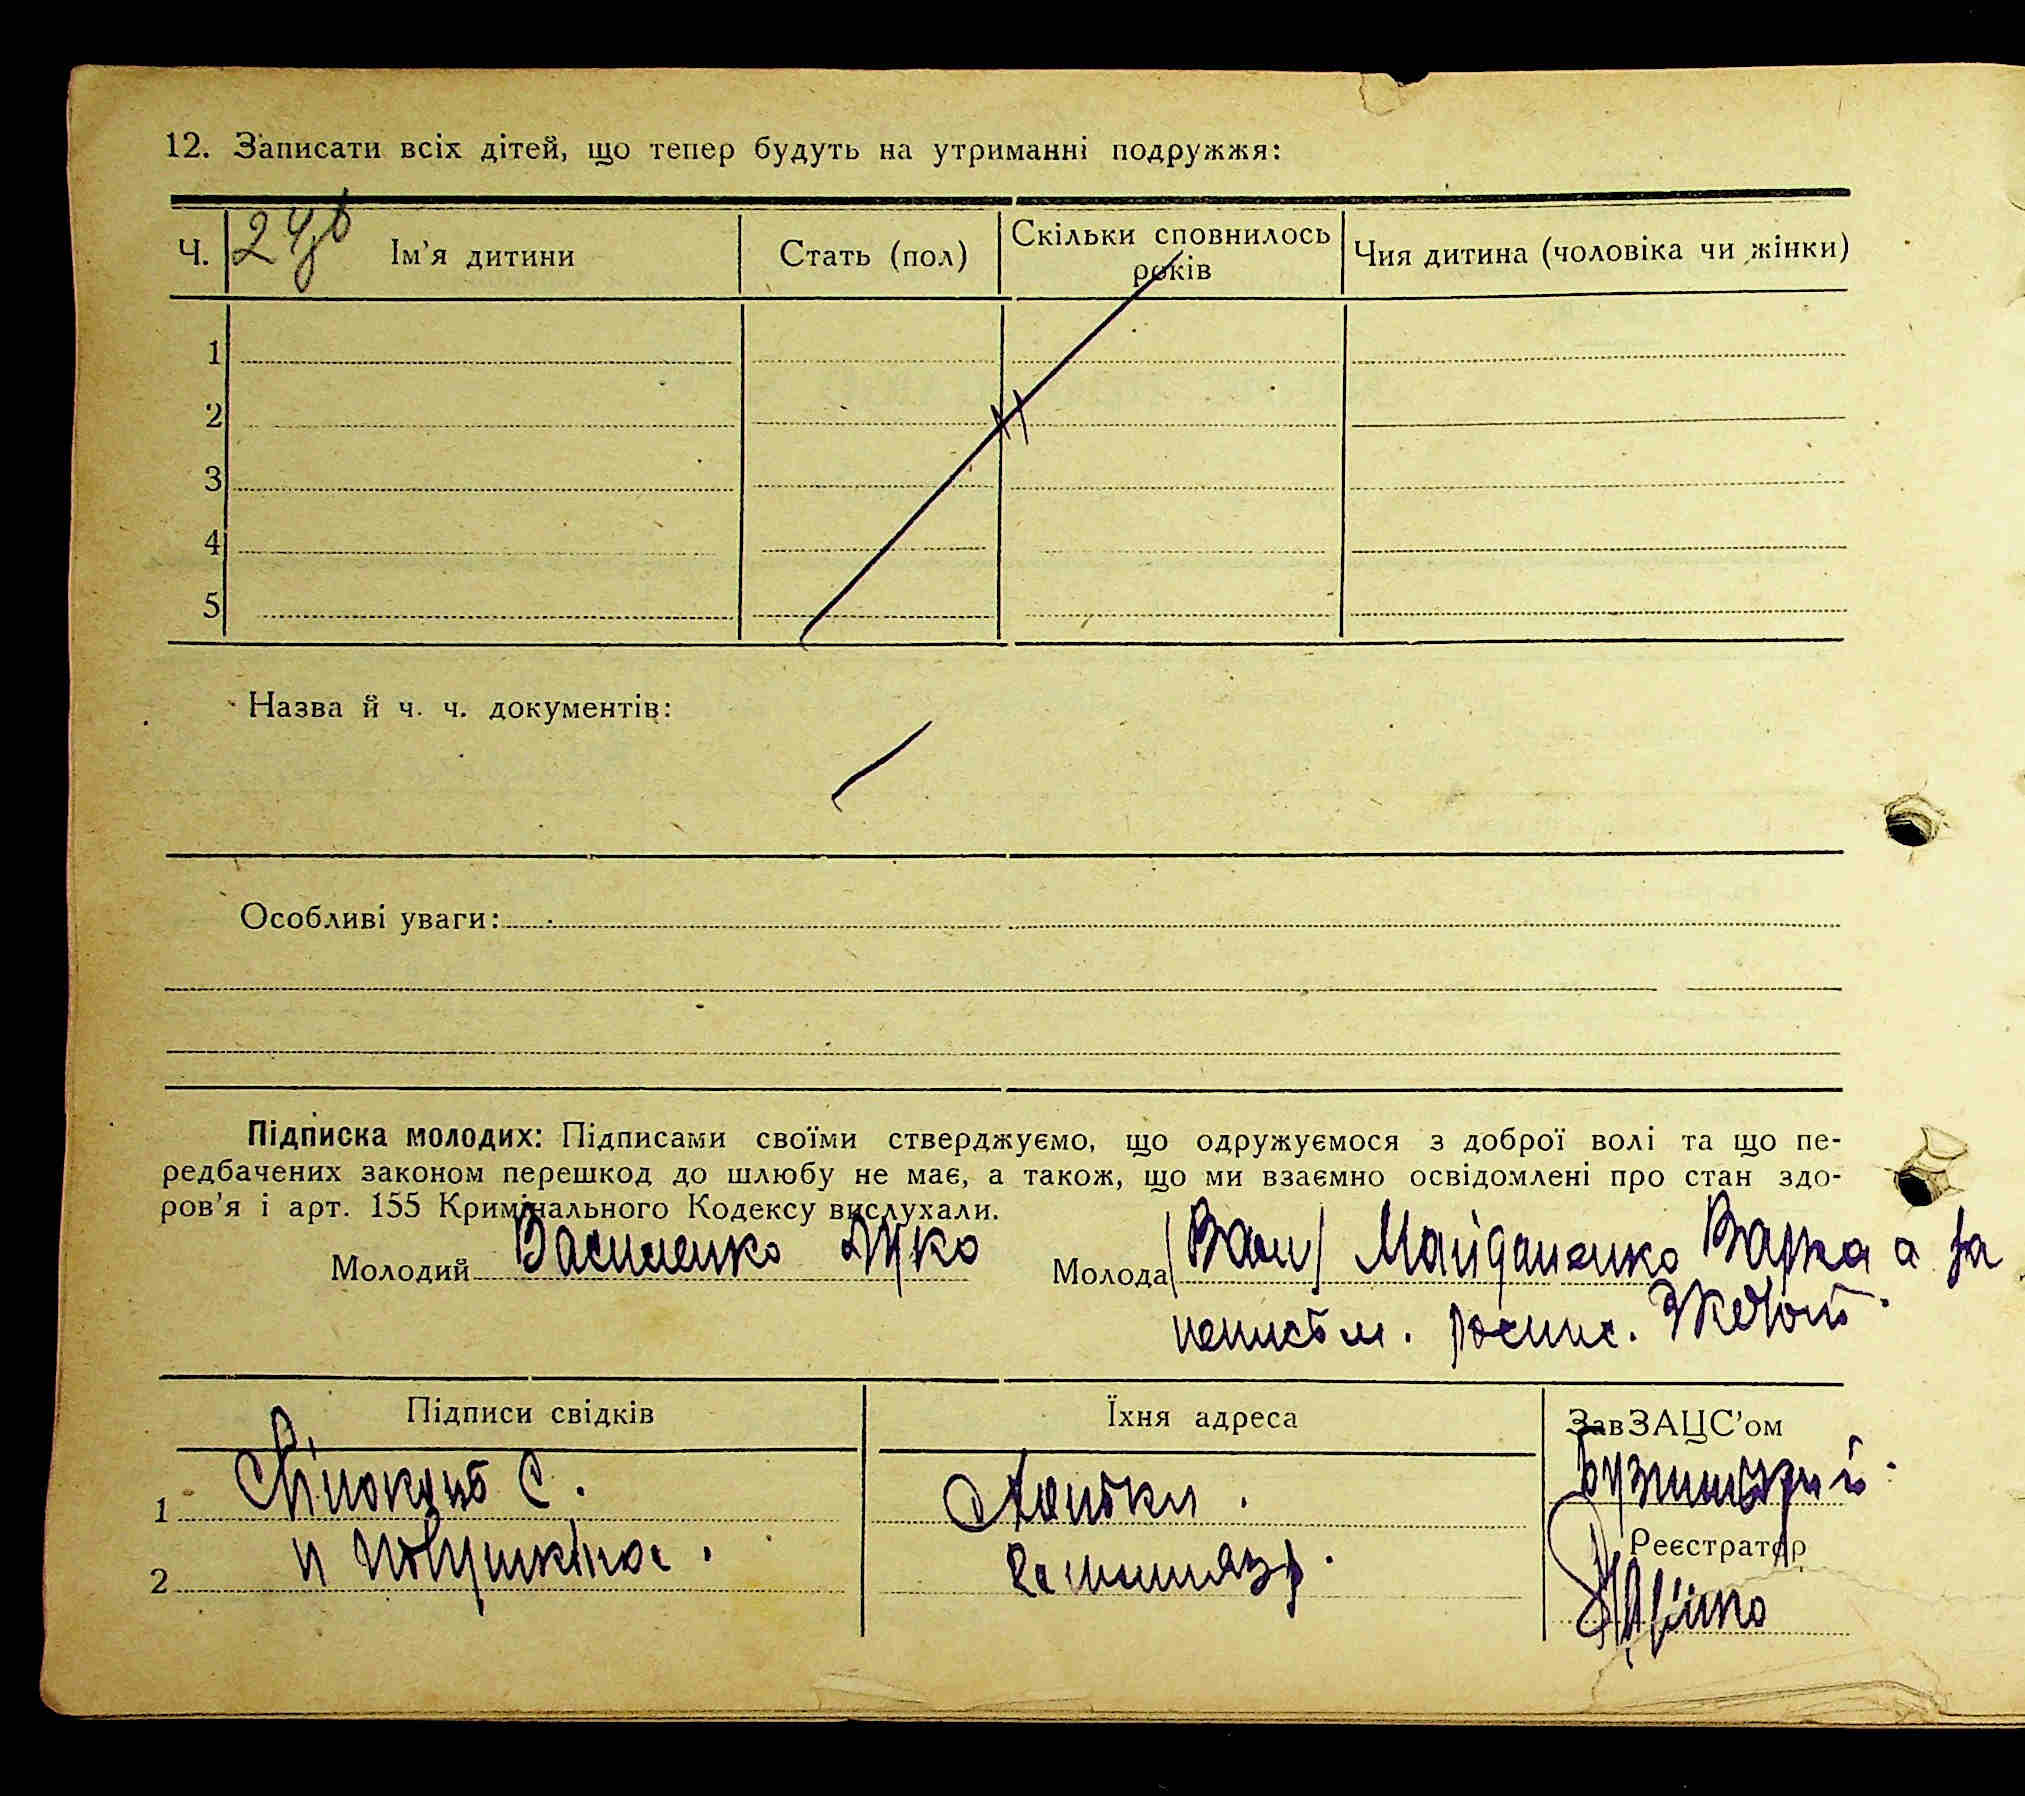 12. Записати всіх дітей, що тепер будуть на утриманні подружжя:
Ч. Ім'я дитини Стать (пол) Скільки сповнилось років Чия дитина (чоловіка чи жінки)
1
2
3
4
5
Назва й ч. ч. документів:
Особливі уваги:
Підписка молодих: Підписами своїми стверджуємо, що одружуємося з доброї волі та що пе-
редбачених законом перешкод до шлюбу не має, а також, що ми взаємно освідомлені про стан здо-
ров'я і арт. 155 Кримінального Кодексу вислухали.
Молодий Василенко Молода Майданенко Варка а за
Підписи свідків Їхня адреса Зав ЗАЦС'ом
1
Реєстратор
2